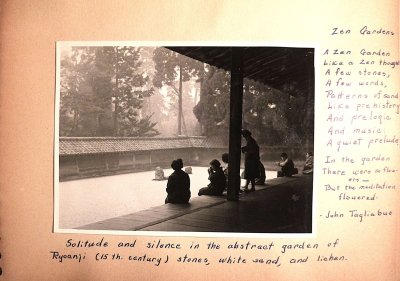 Zen Gardens
A Zen Garden
Like a Zen thought
A few stones,
A few words,
Patterns of sand
Like prehistory
And prelogic
And music
A quiet prelude.
In the garden
There were a few
But the meditation
flowered.
- John Tagliabue
Solitude and silence in the abstract garden of
Ryoanji (15 th. century) stones, white sand, and lichen.